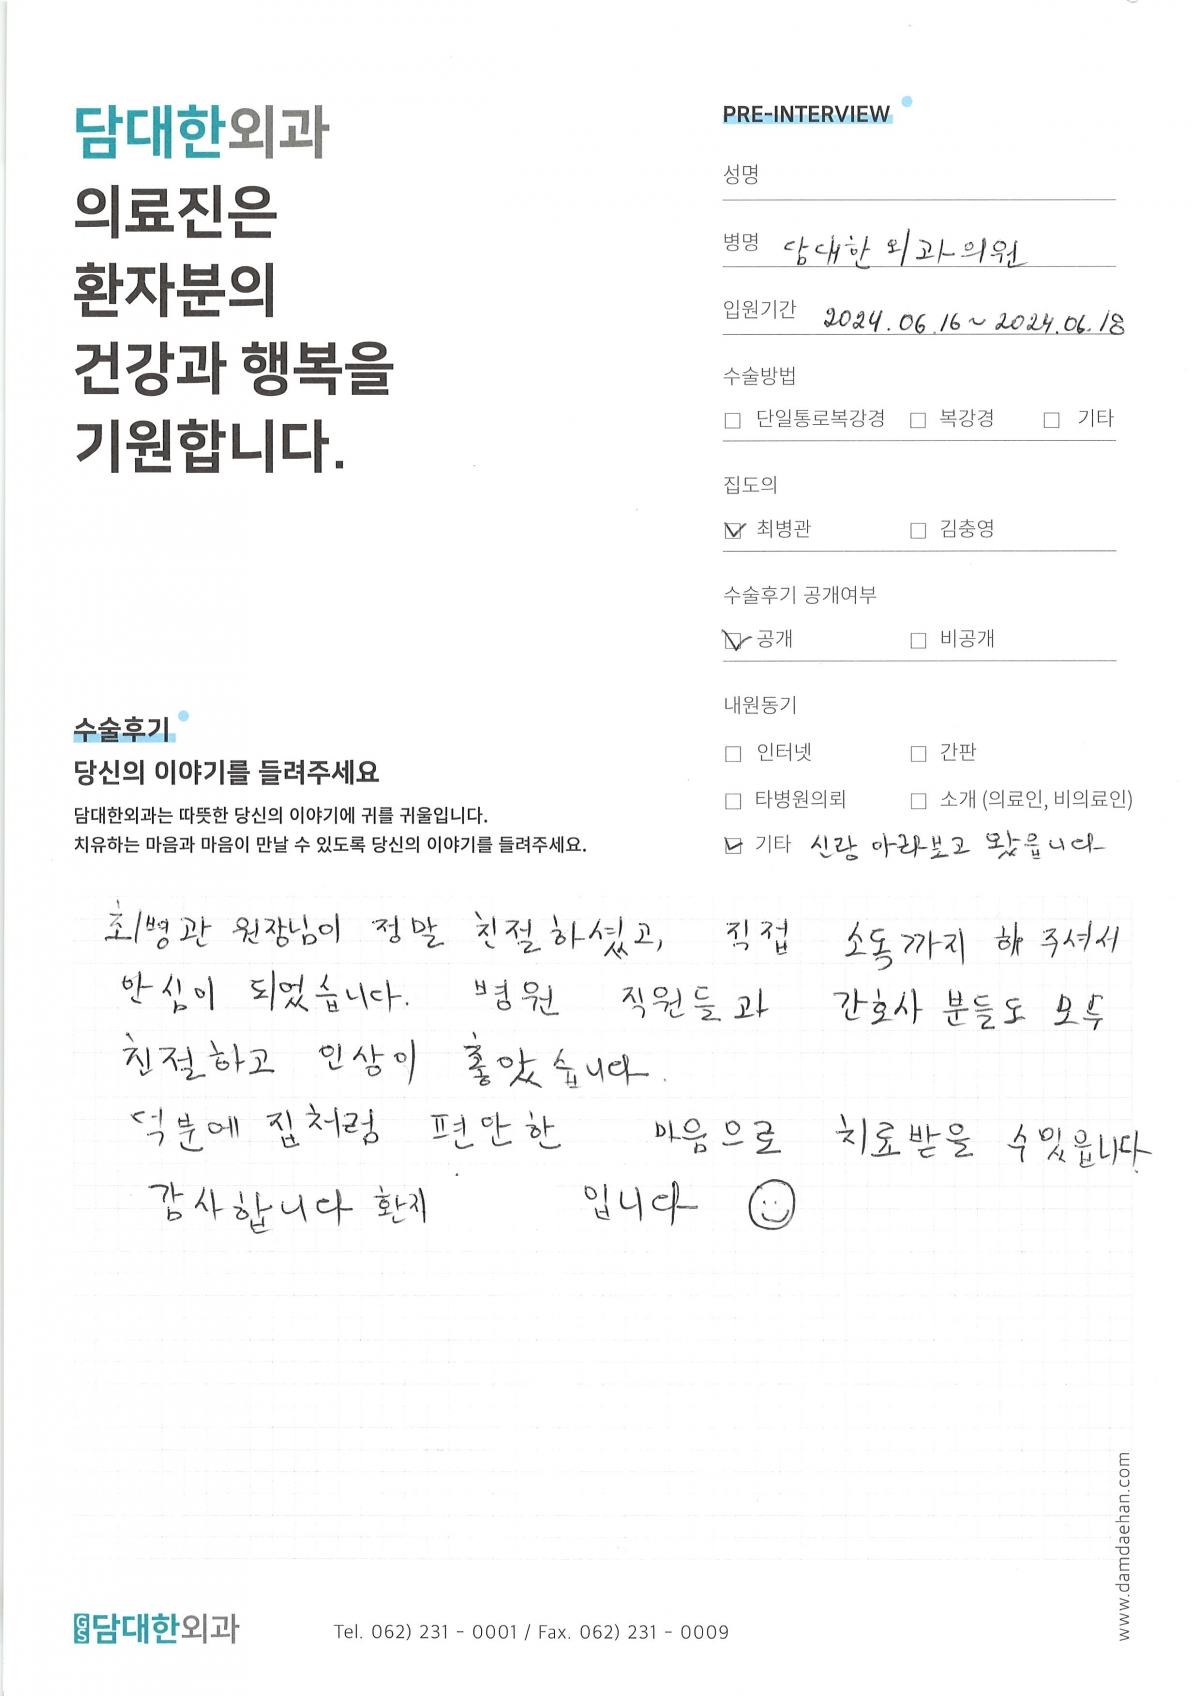 담대한외과
의료진은
환자분의
건강과 행복을
기원합니다.
PRE-INTERVIEW
성명
병명 담대한 외과의원
입원기간 2024.06.16~2024.06.18
수술방법
단일통로복강경 복강경 기타
집도의
최병관 김충영
수술후기 공개여부
공개 비공개
내원동기
인터넷 간판
타병원의뢰 소개 (의료인, 비의료인)
기타 신랑 아라보고 왔읍니다
수술후기
당신의 이야기를 들려주세요
담대한외과는 따뜻한 당신의 이야기에 귀를 귀울입니다.
치유하는 마음과 마음이 만날 수 있도록 당신의 이야기를 들려주세요.
최병관 원장님이 정말 친절하셨고, 직접 소독까지 해 주셔서
안심이 되었습니다. 병원 직원들과 간호사 분들도 모두
친절하고 인상이 좋았습니다.
덕분에 집처럼 편안한 마음으로 치료받을 수있읍니다
감사합니다 환자 입니다
www.damdaehan.com
GS담대한외과
Tel. 062) 231 - 0001 / Fax. 062) 231 - 0009